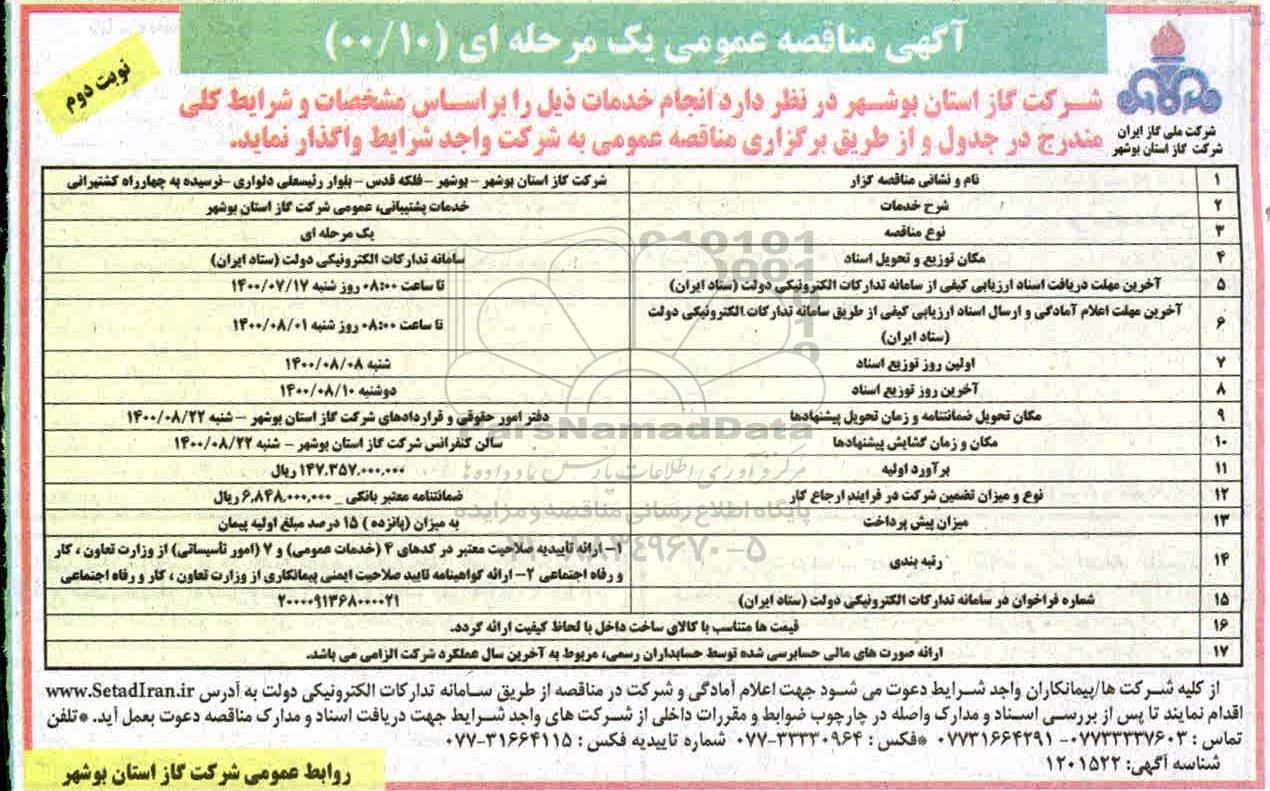 آگهی مناقصه عمومی یک مرحله ای (۰۰/۱۰)
نوبت دوم
شرکت ملی گاز ایران
شرکت گاز استان بوشهر
شرکت گاز استان بوشهر در نظر دارد انجام خدمات ذیل را بر اساس مشخصات و شرایط کلی
مندرج در جدول و از طریق برگزاری مناقصه عمومی به شرکت واجد شرایط واگذار نماید.
۱ نام و نشانی مناقصه گزار شرکت گاز استان بوشهر - بوشهر - فلکه قدس - بلوار رئیسعلی دلواری - نرسیده به چهارراه کشتیرانی
۲ شرح خدمات خدمات پشتیبانی، عمومی شرکت گاز استان بوشهر
۳ نوع مناقصه یک مرحله ای
۴ مکان توزیع و تحویل اسناد سامانه تدارکات الکترونیکی دولت (ستاد ایران)
۵ آخرین مهلت دریافت اسناد ارزیابی کیفی از سامانه تدارکات الکترونیکی دولت (ستاد ایران) تا ساعت ۰۸:۰۰ روز شنبه ۱۴۰۰/۰۷/۱۷
۶ آخرین مهلت اعلام آمادگی و ارسال اسناد ارزیابی کیفی از طریق سامانه تدارکات الکترونیکی دولت
(ستاد ایران) تا ساعت ۰۸:۰۰ روز شنبه ۱۴۰۰/۰۸/۰۱
۷ اولین روز توزیع اسناد شنبه ۱۴۰۰/۰۸/۰۸
۸ آخرین روز توزیع اسناد دوشنبه ۱۴۰۰/۰۸/۱۰
۹ مکان تحویل ضمانتنامه و زمان تحویل پیشنهادها دفتر امور حقوقی و قراردادهای شرکت گاز استان بوشهر – شنبه ۱۴۰۰/۰۸/۲۲
۱۰ مکان و زمان گشایش پیشنهادها سالن کنفرانس شرکت گاز استان بوشهر – شنبه ۱۴۰۰/۰۸/۲۲
۱۱ برآورد اولیه ۱۴۷,۳۵۷,۰۰۰,۰۰۰ ریال
۱۲ نوع و میزان تضمین شرکت در فرایند ارجاع کار ضمانتنامه معتبر بانکی _ ۶,۸۴۸,۰۰۰,۰۰۰ ریال
۱۳ میزان پیش پرداخت به میزان (پانزده) ۱۵ درصد مبلغ اولیه پیمان
۱۴ رتبه بندی ۱- ارائه تاییدیه صلاحیت معتبر در کدهای ۴ (خدمات عمومی) و ۷ (امور تأسیساتی) از وزارت تعاون ، کار
و رفاه اجتماعی ۲- ارائه گواهینامه تایید صلاحیت ایمنی پیمانکاری از وزارت تعاون ، کار و رفاه اجتماعی
۱۵ شماره فراخوان در سامانه تدارکات الکترونیکی دولت (ستاد ایران) ۲۰۰۰۰۹۱۳۶۸۰۰۰۰۲۱
۱۶ قیمت ها متناسب با کالای ساخت داخل با لحاظ کیفیت ارائه گردد.
۱۷ ارائه صورت های مالی حسابرسی شده توسط حسابداران رسمی، مربوط به آخرین سال عملکرد شرکت الزامی می باشد.
از کلیه شرکت ها/پیمانکاران واجد شرایط دعوت می شود جهت اعلام آمادگی و شرکت در مناقصه از طریق سامانه تدارکات الکترونیکی دولت به آدرس www.SetadIran.ir
اقدام نمایند تا پس از بررسی اسناد و مدارک واصله در چارچوب ضوابط و مقررات داخلی از شرکت های واجد شرایط جهت دریافت اسناد و مدارک مناقصه دعوت بعمل آید. *تلفن
تماس : ۰۷۷۳۳۳۳۷۶۰۳- ۰۷۷۳۱۶۶۴۲۹۱ *فکس : ۳۳۳۳۰۹۶۴-۰۷۷ شماره تاییدیه فکس : ۳۱۶۶۴۱۱۵-۰۷۷
شناسه آگهی: ۱۲۰۱۵۲۲
روابط عمومی شرکت گاز استان بوشهر
ParsNamadData
مرکز فرآوری اطلاعات پارس نماد داده ها
پایگاه اطلاع رسانی مناقصه و مزایده
۰۲۱-۸۸۳۴۹۶۷۰-۵